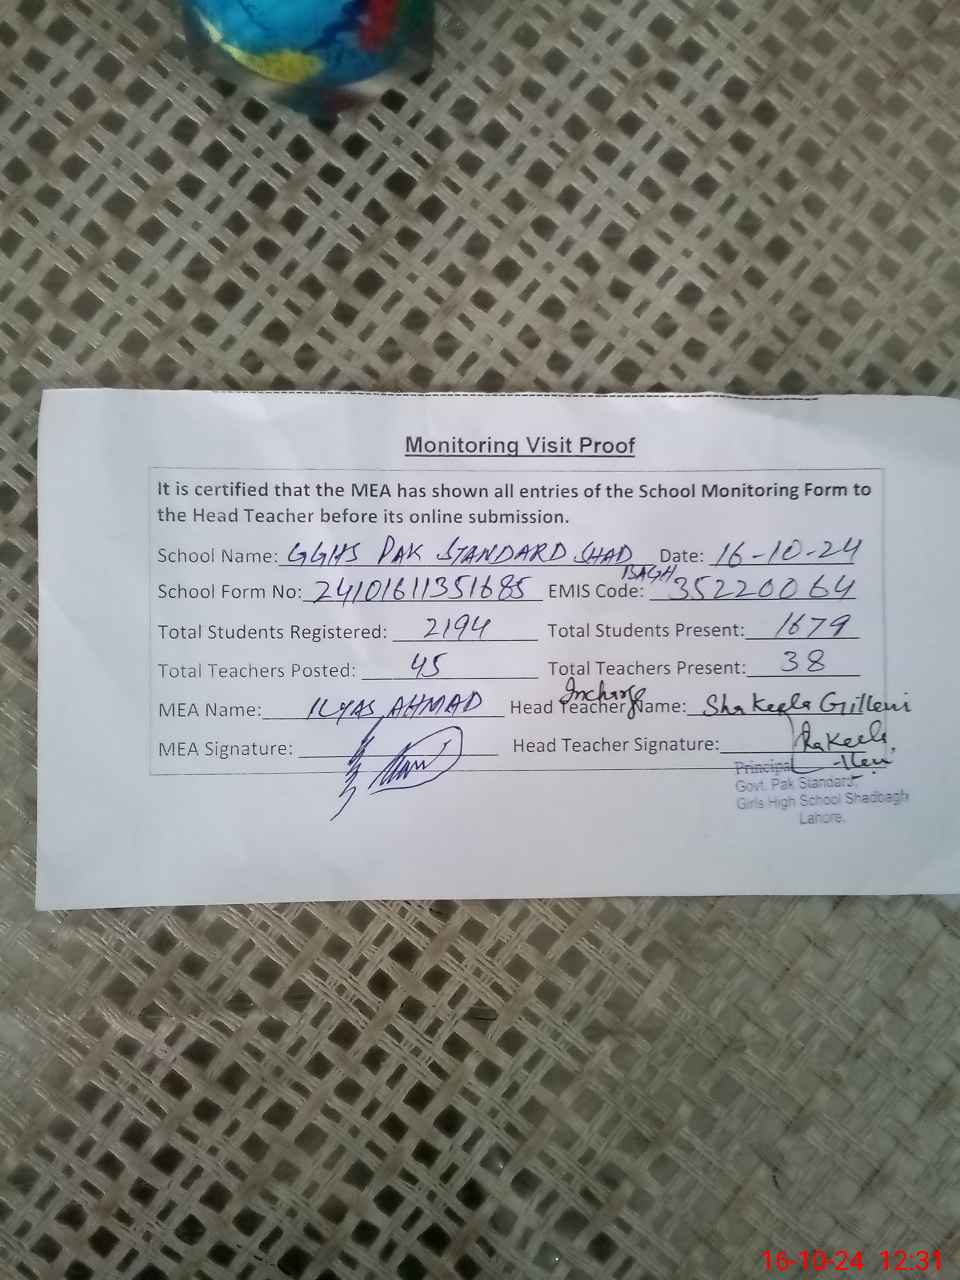 Monitoring Visit Proof
It is certified that the MEA has shown all entries of the School Monitoring Form to
the Head Teacher before its online submission.
School Name: GGHS PAK STANDARD SHAD BAGH Date: 16-10-24
School Form No: 24101611351685 EMIS Code: 35220064
Total Students Registered: 2194 Total Students Present: 1679
Total Teachers Posted: 45 Total Teachers Present: 38
MEA Name: ILYAS AHMAD Incharge Head Teacher Name: Shakeela Gilleni
MEA Signature: Head Teacher Signature: Shakeela
Principal
Govt. Pak Standard,
Girls High School Shadbagh
Lahore.
16-10-24 12:31